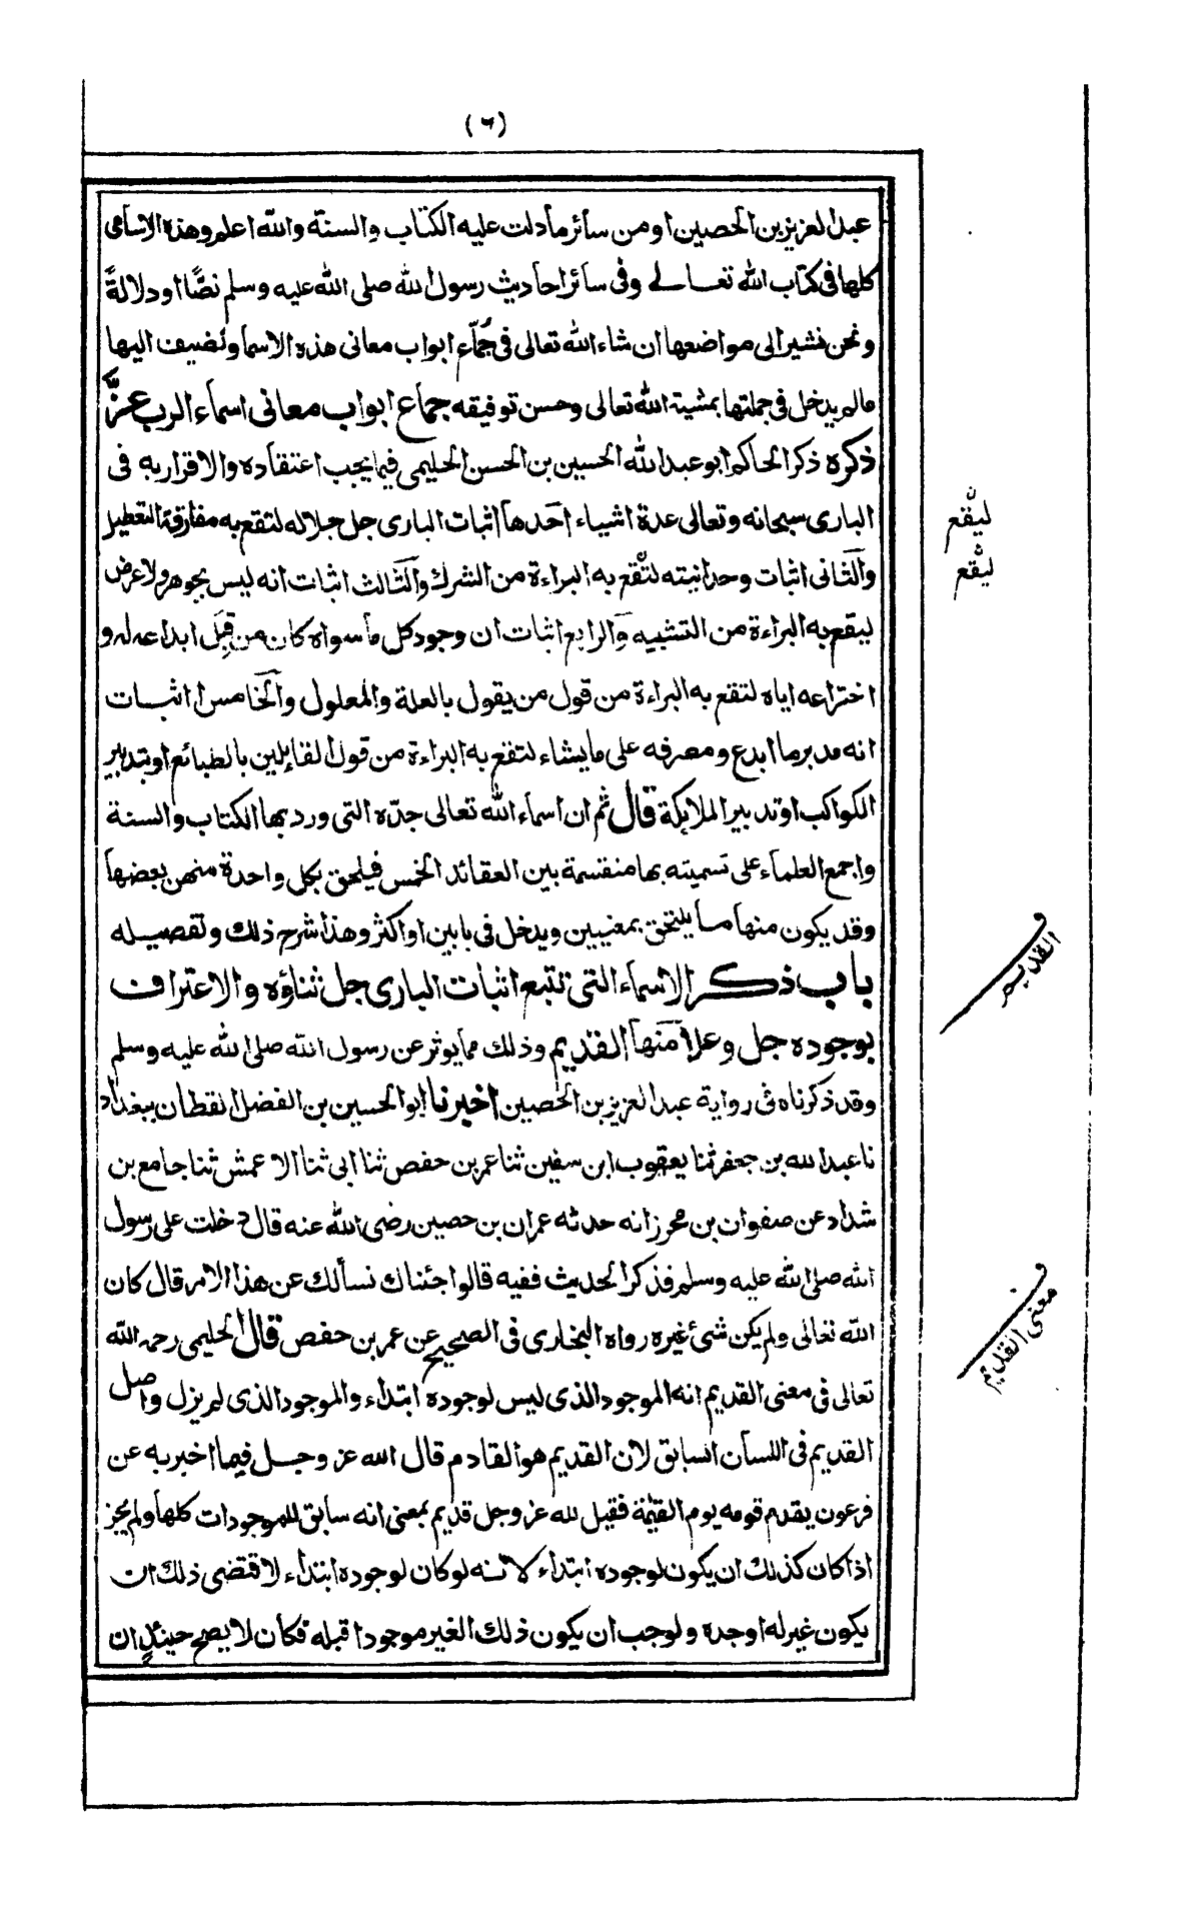 (٦)
عبد العزيز بن الحصين او من سائر ما دلت عليه الكتاب والسنة والله اعلم وهذه الاسامى
كلها فى كتاب الله تعالى وفى سائر احاديث رسول الله صلى الله عليه وسلم نصًّا او دلالةً
ونحن نشير الى مواضعها ان شاء الله تعالى فى جُمّاع ابواب معانى هذه الاسماء ونضيف اليها
مالم يدخل فى جملتها بمشية الله تعالى وحسن توفيقه جماع ابواب معانى اسماء الرب عزَّ
ذكره ذكر الحاكم ابو عبد الله الحسين بن الحسن الحليمى فيما يجب اعتقاده والاقرار به فى
البارى سبحانه وتعالى عدة اشياء احدها اثبات البارى جل جلاله لتقع به مفارقة التعطيل
والثانى اثبات وحدانيته لتقع به البراءة من الشرك والثالث اثبات انه ليس بجوهر ولا عرض
ليقع به البراءة من التشبيه والرابع اثبات ان وجود كل ما سواه كان من قِبَل ابداعه له و
اختراعه اياه لتقع به البراءة من قول من يقول بالعلة والمعلول والخامس اثبات
انه مدبر ما ابدع ومصرفه على ما يشاء لتقع به البراءة من قول القائلين بالطبائع او بتدبير
الكواكب او تدبير الملايكة قال ثم ان اسماء الله تعالى جدّه التى ورد بها الكتاب والسنة
واجمع العلماء على تسميته بها منقسمة بين العقائد الخمس فيلحق بكل واحدة منهن بعضها
وقد يكون منها ما يلتحق بمعنيين ويدخل فى بابين او اكثر وهذا شرح ذلك وتفصيله
باب ذكر الاسماء التى تتبع اثبات البارى جل ثناؤه والاعتراف
بوجوده جل وعلا منها القديم وذلك مما يوثر عن رسول الله صلى الله عليه وسلم
وقد ذكرناه فى رواية عبد العزيز بن الحصين اخبرنا ابو الحسين بن الفضل القطان ببغداد
نا عبد الله بن جعفر ثنا يعقوب ابن سفين ثنا عمر بن حفص ثنا ابى ثنا الاعمش ثنا جامع بن
شداد عن صفوان بن محرز انه حدثه عمران بن حصين رضى الله عنه قال دخلت على رسول
الله صلى الله عليه وسلم فذكر الحديث ففيه قالوا جئناك نسألك عن هذا الامر قال كان
الله تعالى ولم يكن شئ غيره رواه البخارى فى الصحيح عن عمر بن حفص قال الحليمى رحمه الله
تعالى فى معنى القديم انه الموجود الذى ليس لوجوده ابتداء والموجود الذى لم يزل واصل
القديم فى اللسان السابق لان القديم هو القادم قال الله عز وجل فيما اخبر به عن
فرعون يقدم قومه يوم القيمة فقيل لله عز وجل قديم بمعنى انه سابق للموجودات كلها ولم يجز
اذا كان كذلك ان يكون لوجوده ابتداء لانه لو كان لوجوده ابتداء لاقتضى ذلك ان
يكون غير له اوجده ولوجب ان يكون ذلك الغير موجودا قبله فكان لا يصح حينئذٍ ان
ليقع
ليقع
القديم
معنى القديم